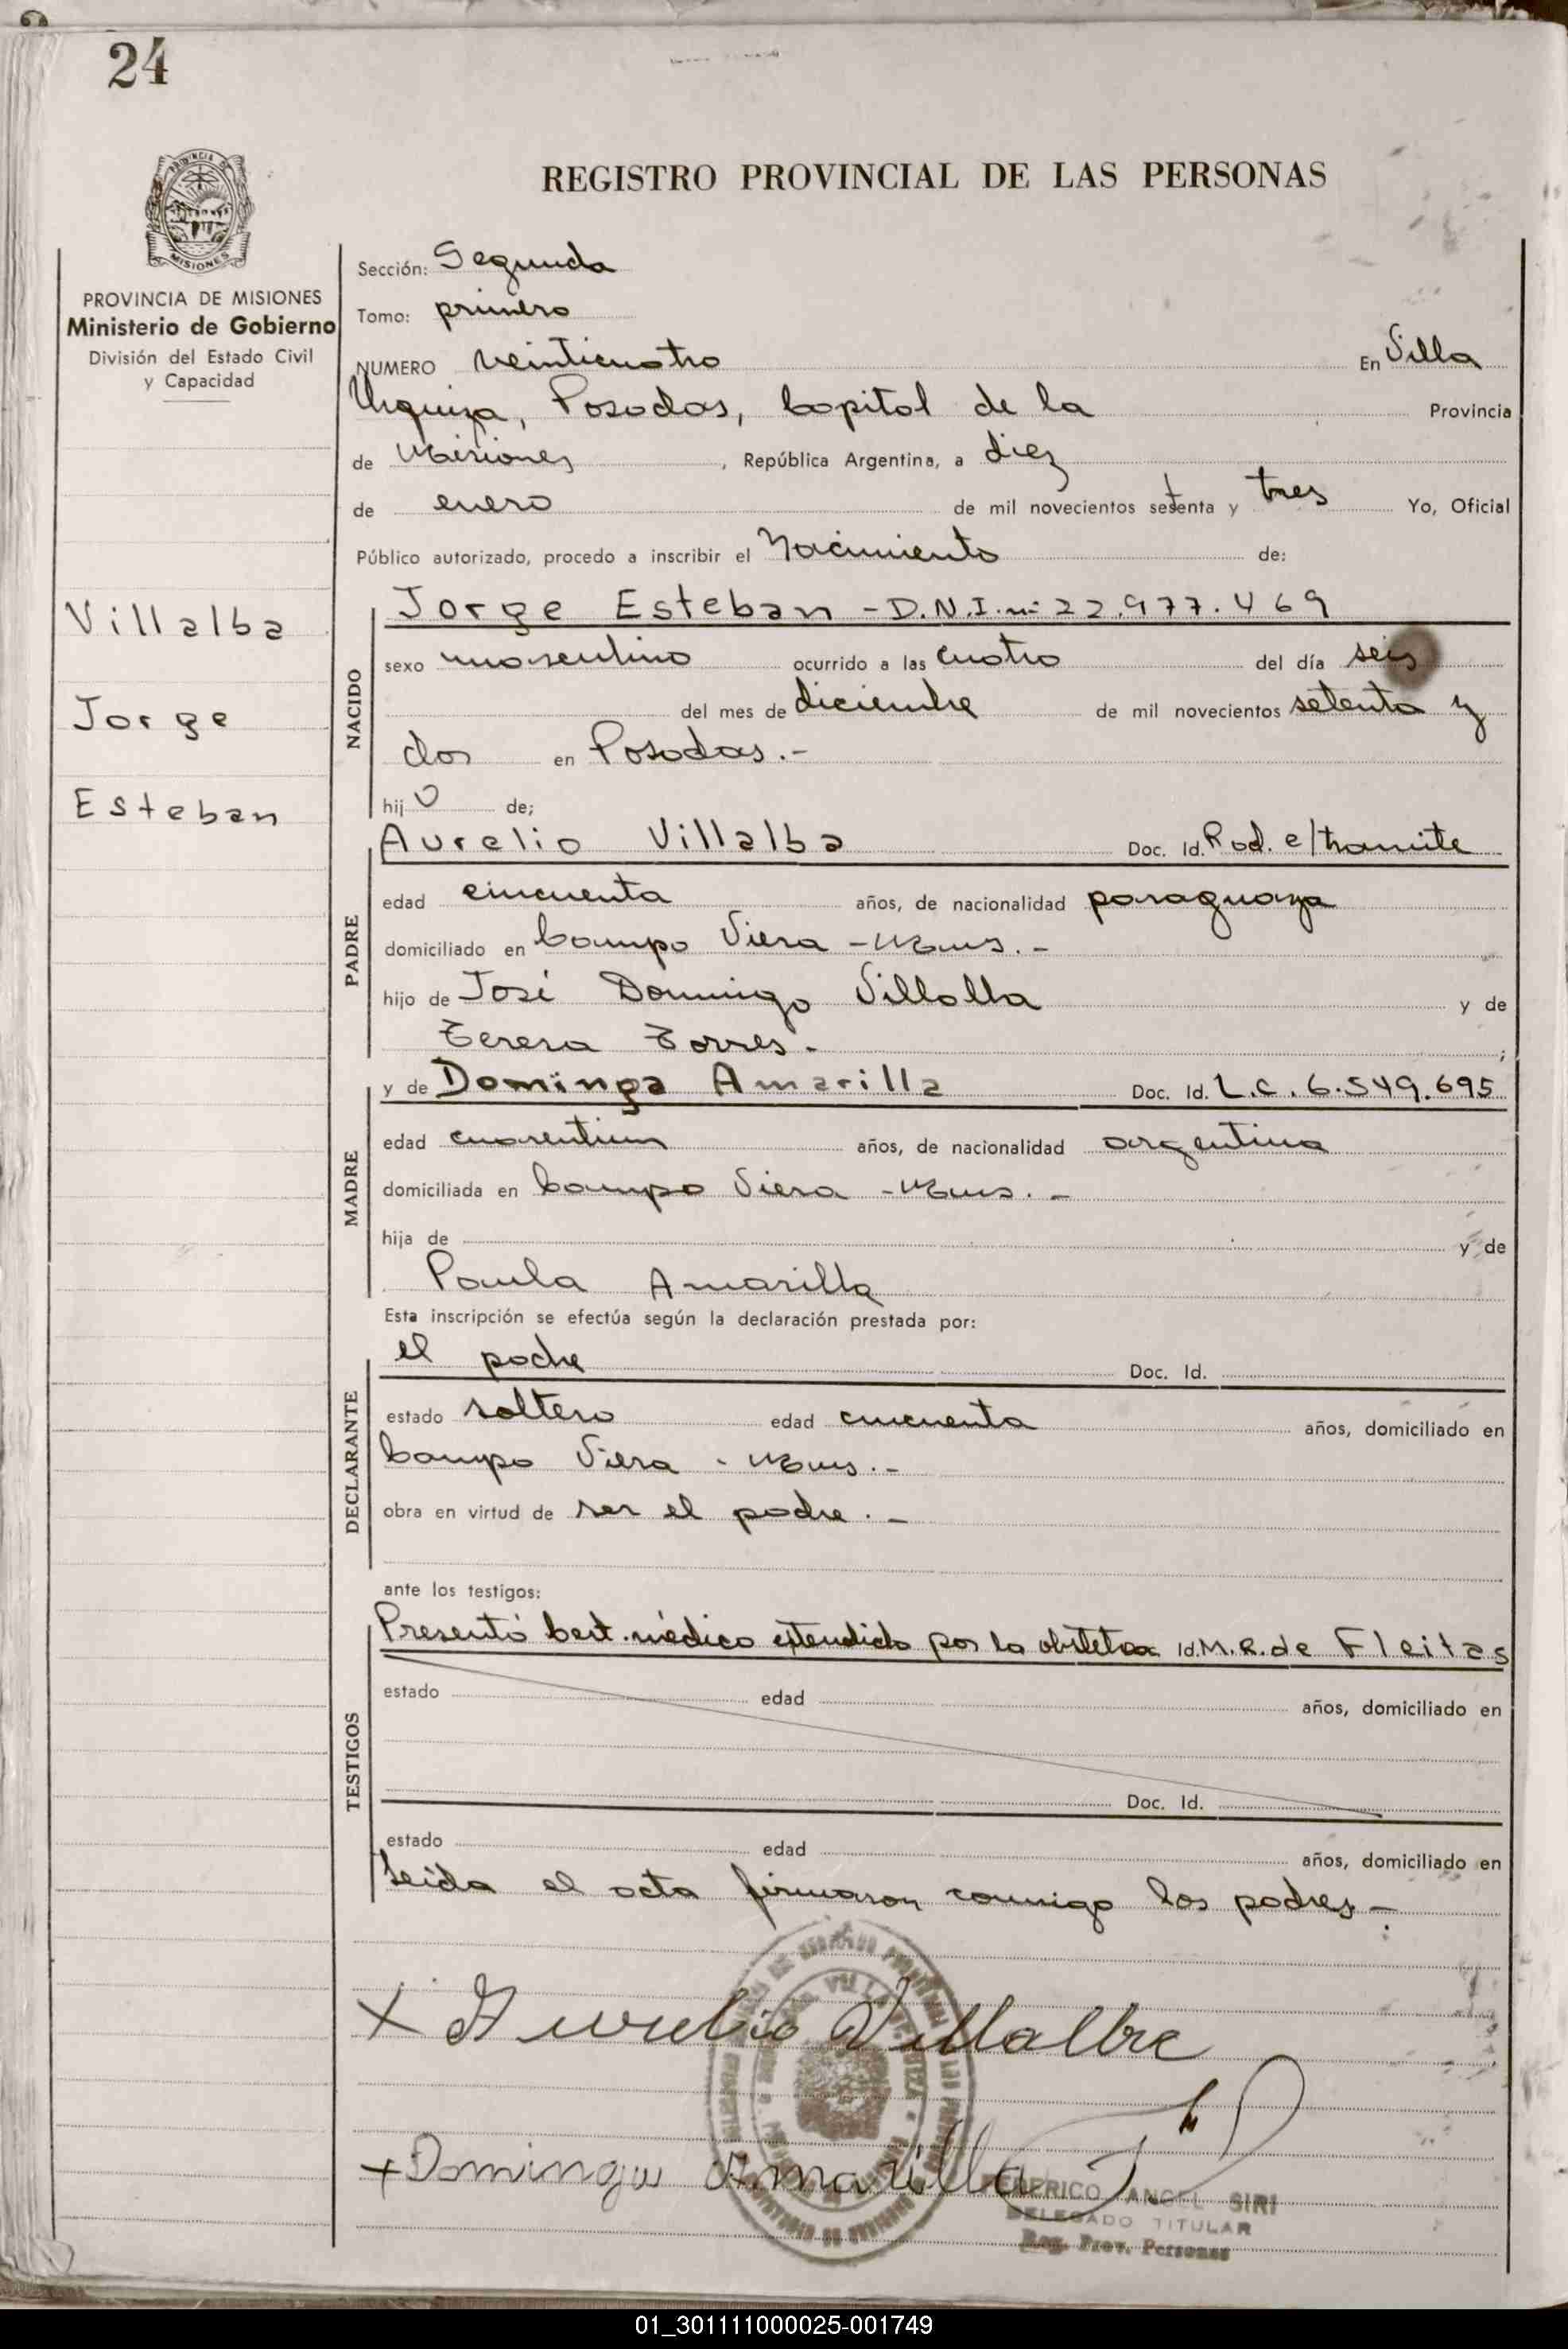 24
REGISTRO PROVINCIAL DE LAS PERSONAS
PROVINCIA DE
MISIONES
PROVINCIA DE MISIONES
Ministerio de Gobierno
División del Estado Civil
y Capacidad
Villalba
Jorge
Esteban
Sección: Segunda
Tomo: primero
NUMERO veinticuatro En Villa
Urquiza, Posadas, Capital de la Provincia
de Misiones, República Argentina, a diez
de enero de mil novecientos setenta y tres Yo, Oficial
Público autorizado, procedo a inscribir el Nacimiento de:
NACIDO
Jorge Esteban - D.N.I. nº 22.977.469
sexo masculino ocurrido a las cuatro del día seis
del mes de diciembre de mil novecientos setenta y
dos en Posadas.-
hij o de;
PADRE
Aurelio Villalba Doc. Id. Rad. e/tramite
edad cincuenta años, de nacionalidad paraguaya
domiciliado en Campo Viera - Mnes.-
hijo de José Domingo Villalba y de
Teresa Torres.- ;
MADRE
y de Dominga Amarilla Doc. Id. L.C. 6.549.695
edad años, de nacionalidad argentina
domiciliada en Campo Viera - Mnes.-
hija de y de
Paula Amarilla
Esta inscripción se efectúa según la declaración prestada por:
DECLARANTE
el padre Doc. Id.
estado soltero edad cincuenta años, domiciliado en
Campo Viera - Mnes.-
obra en virtud de ser el padre.-
ante los testigos:
TESTIGOS
Presentó Cert. médico extendido por la obstetra Id. M.R. de Fleitas
estado edad años, domiciliado en
Doc. Id.
estado edad años, domiciliado en
Leida el acta firmaron conmigo los padres.-
x Aurelio Villalba
x Dominga Amarilla
FEDERICO ANGEL SIRI
DELEGADO TITULAR
Reg. Prov. Personas
01_301111000025-001749